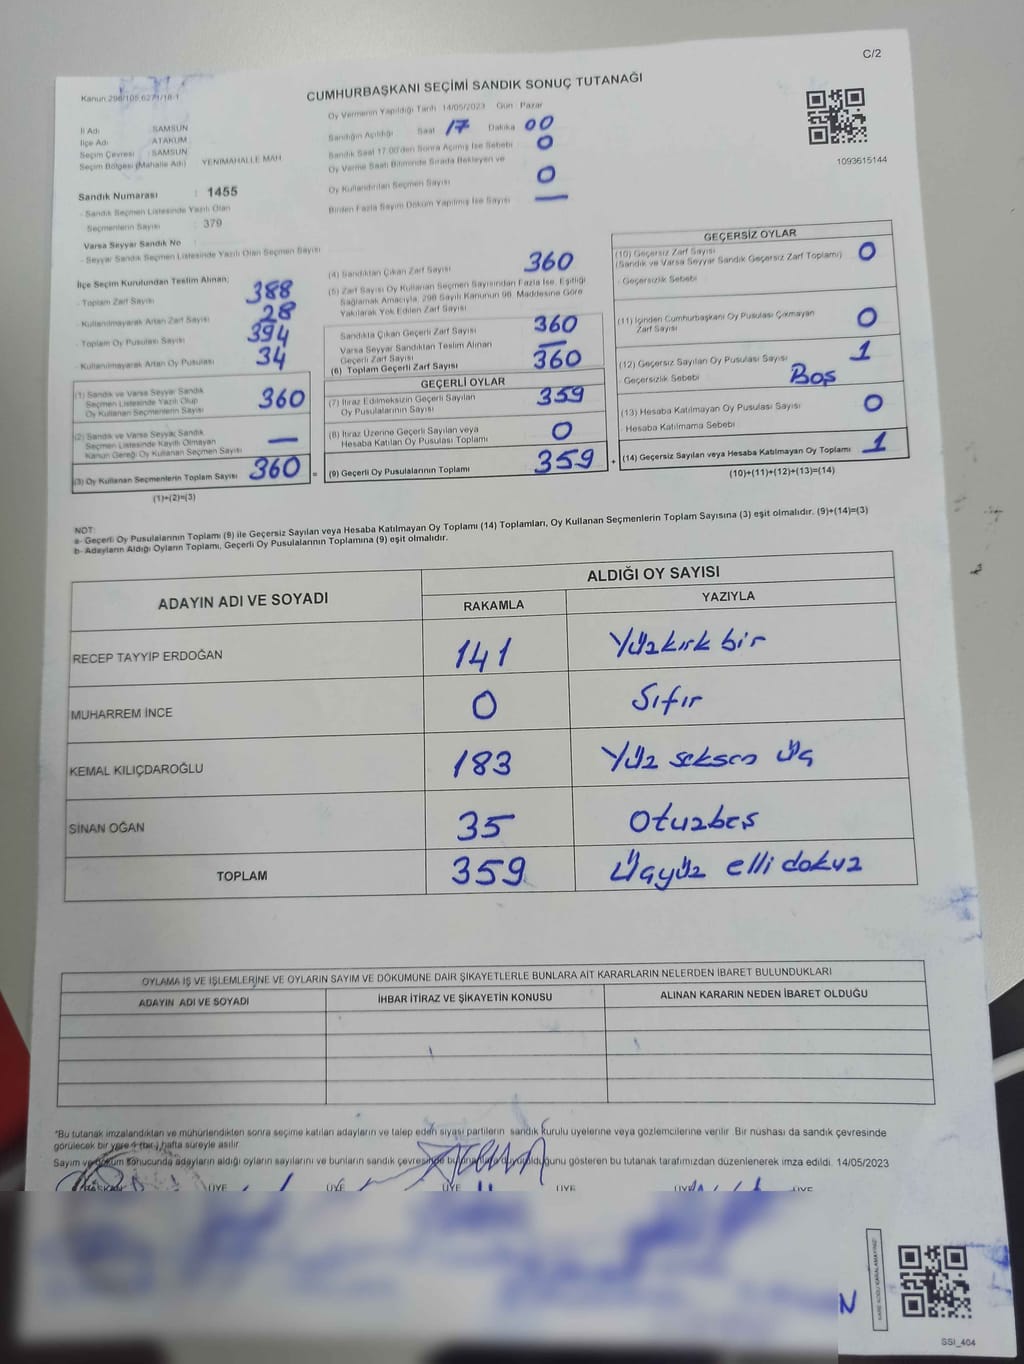 C/2
Kanun 298/105,6271/18-1
CUMHURBAŞKANI SEÇİMİ SANDIK SONUÇ TUTANAĞI
1093615144
İl Adı SAMSUN
İlçe Adı ATAKUM
Seçim Çevresi : SAMSUN
Seçim Bölgesi (Mahalle Adı) YENİMAHALLE MAH
Oy Vermenin Yapıldığı Tarih 14/05/2023 Gün : Pazar
Sandığın Açıldığı Saat 17 Dakika 00
Sandık Saat 17:00'den Sonra Açılmış İse Sebebi 0
Oy Verme Saati Bitiminde Sırada Bekleyen ve
Oy Kullandırılan Seçmen Sayısı 0
Birden Fazla Sayım Döküm Yapılmış İse Sayısı —
Sandık Numarası : 1455
- Sandık Seçmen Listesinde Yazılı Olan
Seçmenlerin Sayısı : 379
Varsa Seyyar Sandık No
- Seyyar Sandık Seçmen Listesinde Yazılı Olan Seçmen Sayısı
İlçe Seçim Kurulundan Teslim Alınan;
- Toplam Zarf Sayısı 388
- Kullanılmayarak Artan Zarf Sayısı 28
- Toplam Oy Pusulası Sayısı 394
- Kullanılmayarak Artan Oy Pusulası 34
(1) Sandık ve Varsa Seyyar Sandık
Seçmen Listesinde Yazılı Olup
Oy Kullanan Seçmenlerin Sayısı 360
(2) Sandık ve Varsa Seyyar Sandık
Seçmen Listesinde Kayıtlı Olmayan
Kanun Gereği Oy Kullanan Seçmen Sayısı —
(3) Oy Kullanan Seçmenlerin Toplam Sayısı 360 =
(1)+(2)=(3)
(4) Sandıktan Çıkan Zarf Sayısı 360
(5) Zarf Sayısı Oy Kullanan Seçmen Sayısından Fazla İse, Eşitliği
Sağlamak Amacıyla, 298 Sayılı Kanunun 98. Maddesine Göre
Yakılarak Yok Edilen Zarf Sayısı
Sandıkta Çıkan Geçerli Zarf Sayısı 360
Varsa Seyyar Sandıktan Teslim Alınan
Geçerli Zarf Sayısı —
(6) Toplam Geçerli Zarf Sayısı 360
GEÇERLİ OYLAR
(7) İtiraz Edilmeksizin Geçerli Sayılan
Oy Pusulalarının Sayısı 359
(8) İtiraz Üzerine Geçerli Sayılan veya
Hesaba Katılan Oy Pusulası Toplamı 0
(9) Geçerli Oy Pusulalarının Toplamı 359 +
GEÇERSİZ OYLAR
(10) Geçersiz Zarf Sayısı
(Sandık ve Varsa Seyyar Sandık Geçersiz Zarf Toplamı) 0
- Geçersizlik Sebebi
(11) İçinden Cumhurbaşkanı Oy Pusulası Çıkmayan
Zarf Sayısı 0
(12) Geçersiz Sayılan Oy Pusulası Sayısı 1
- Geçersizlik Sebebi Boş
(13) Hesaba Katılmayan Oy Pusulası Sayısı 0
Hesaba Katılmama Sebebi
(14) Geçersiz Sayılan veya Hesaba Katılmayan Oy Toplamı 1
(10)+(11)+(12)+(13)=(14)
NOT:
a- Geçerli Oy Pusulalarının Toplamı (9) ile Geçersiz Sayılan veya Hesaba Katılmayan Oy Toplamı (14) Toplamları, Oy Kullanan Seçmenlerin Toplam Sayısına (3) eşit olmalıdır. (9)+(14)=(3)
b- Adayların Aldığı Oyların Toplamı, Geçerli Oy Pusulalarının Toplamına (9) eşit olmalıdır.
ADAYIN ADI VE SOYADI ALDIĞI OY SAYISI
RAKAMLA YAZIYLA
RECEP TAYYİP ERDOĞAN 141 Yüzkırk bir
MUHARREM İNCE 0 Sıfır
KEMAL KILIÇDAROĞLU 183 Yüz seksen üç
SİNAN OĞAN 35 Otuzbeş
TOPLAM 359 Üçyüz elli dokuz
OYLAMA İŞ VE İŞLEMLERİNE VE OYLARIN SAYIM VE DÖKÜMÜNE DAİR ŞİKAYETLERLE BUNLARA AİT KARARLARIN NELERDEN İBARET BULUNDUKLARI
ADAYIN ADI VE SOYADI İHBAR İTİRAZ VE ŞİKAYETİN KONUSU ALINAN KARARIN NEDEN İBARET OLDUĞU
*Bu tutanak imzalandıktan ve mühürlendikten sonra seçime katılan adayların ve talep eden siyasi partilerin sandık kurulu üyelerine veya gözlemcilerine verilir. Bir nüshası da sandık çevresinde
görülecek bir yere 1 (bir) hafta süreyle asılır.
Sayım ve döküm sonucunda adayların aldığı oyların sayılarını ve bunların sandık çevresinde duyurulduğunu gösteren bu tutanak tarafımızdan düzenlenerek imza edildi. 14/05/2023
BAŞKAN ÜYE ÜYE ÜYE ÜYE ÜYE ÜYE
N
SSI_404